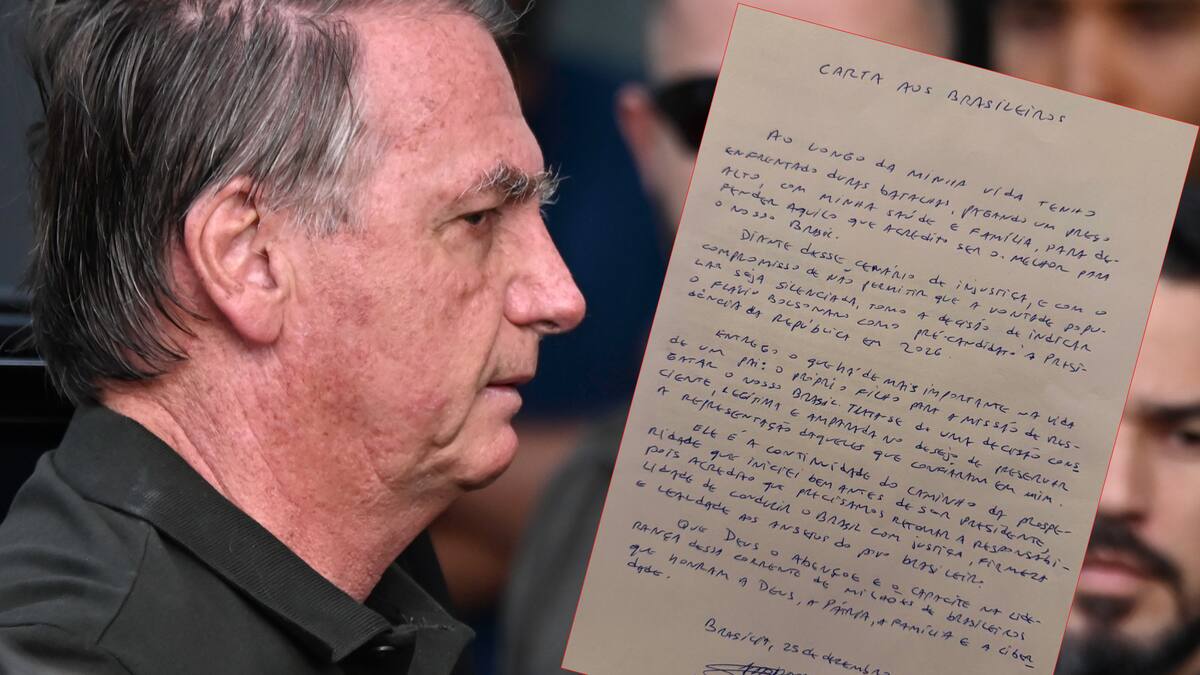 CARTA AOS BRASILEIROS
AO LONGO DA MINHA VIDA TENHO
ENFRENTADO DURAS BATALHAS, PAGANDO UM PREÇO
ALTO, COM MINHA SAÚDE E FAMÍLIA, PARA DE-
FENDER AQUILO QUE ACREDITO SER O MELHOR PARA
O NOSSO BRASIL.
DIANTE DESSE CENÁRIO DE INJUSTIÇA, E COM O
COMPROMISSO DE NÃO PERMITIR QUE A VONTADE POPU-
LAR SEJA SILENCIADA, TOMO A DECISÃO DE INDICAR
O FLÁVIO BOLSONARO COMO PRÉ-CANDIDATO À PRESI-
DÊNCIA DA REPÚBLICA EM 2026.
ENTREGO O QUE HÁ DE MAIS IMPORTANTE NA VIDA
DE UM PAI: O PRÓPRIO FILHO PARA A MISSÃO DE RES-
GATAR O NOSSO BRASIL. TRATA-SE DE UMA DECISÃO CONS
CIENTE, LEGÍTIMA E AMPARADA NO DESEJO DE PRESERVAR
A REPRESENTAÇÃO DAQUELES QUE CONFIARAM EM MIM.
ELE É A CONTINUIDADE DO CAMINHO DA PROSPE-
RIDADE QUE INICIEI BEM ANTES DE SER PRESIDENTE,
POIS ACREDITO QUE PRECISAMOS RETOMAR A RESPONSABI-
LIDADE DE CONDUZIR O BRASIL COM JUSTIÇA, FIRMEZA
E LEALDADE AOS ANSEIOS DO POVO BRASILEIRO.
QUE DEUS O ABENÇOE E O CAPACITE NA LIDE-
RANÇA DESSA CORRENTE DE MILHÕES DE BRASILEIROS
QUE HONRAM A DEUS, A PÁTRIA, A FAMÍLIA E A LIBER
DADE.
BRASÍLIA, 25 DE DEZEMBRO